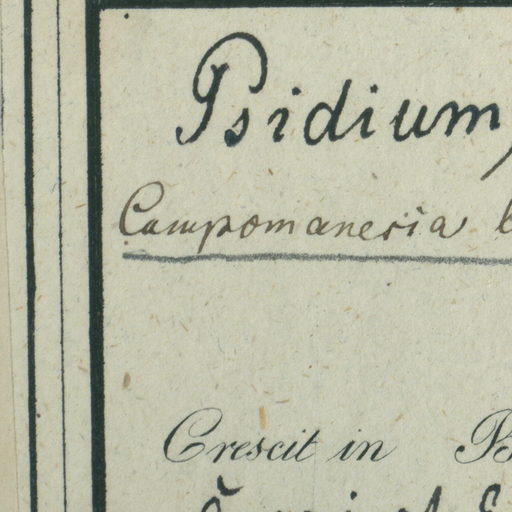 Psidium,
Campomanesia
Crescit in B